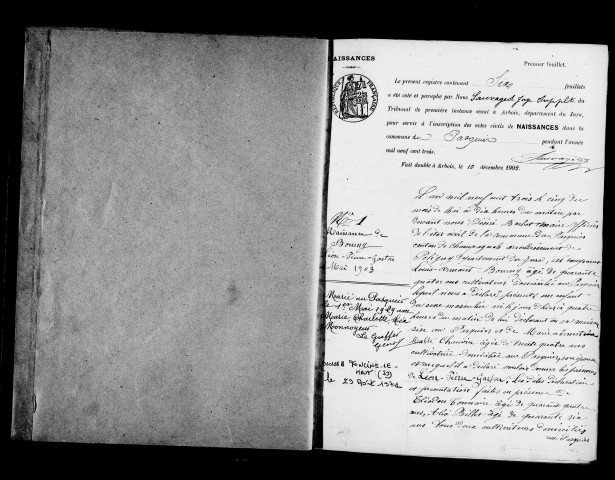 NAISSANCES
Premier feuillet.
Le présent registre contenant Six feuillets
a été coté et paraphé par Nous Sauvaged Juge Suppléᵗ du
Tribunal de première instance séant à Arbois, département du Jura,
pour servir à l'inscription des actes civils de NAISSANCES dans la
commune de Pasquier pendant l'année
mil neuf cent trois.
Fait double à Arbois, le 15 décembre 1902.
Nº 1
Naissance de
Bourny
Léon Pierre Gaston
Mai 1903
Marié au Pasquier
le 1er Mai 1929 avec
Marie Charlotte
Monnoyeur
Le Greffier
décédé à
le 29 Août 1982
L'an mil neuf cent trois le cinq du
mois de Mai à dix heures du matin par
devant nous Désiré maire officier
de l'état civil de la commune du Pasquier
canton de Champagnole arrondissement de
Poligny département du Jura, est comparu
Louis Bourny âgé de quarante
quatre ans cultivateur domicilié au Pasquier
lequel nous a déclaré, présenté un enfant
du sexe masculin né le jour d'hier à quatre
heures du matin de lui déclarant en sa maison
sise au Pasquier et de Marie
Chauvin âgée de trente quatre ans
cultivatrice domiciliée au Pasquier, son épouse
et auquel il a déclaré vouloir donner les prénoms
de Léon-Pierre-Gaston, Les dites déclaration
et présentation faites en présence de
Théodore Tonnaire âgé de quarante quatre
ans, âgé de quarante six
ans tous deux cultivateurs domiciliés
au Pasquier